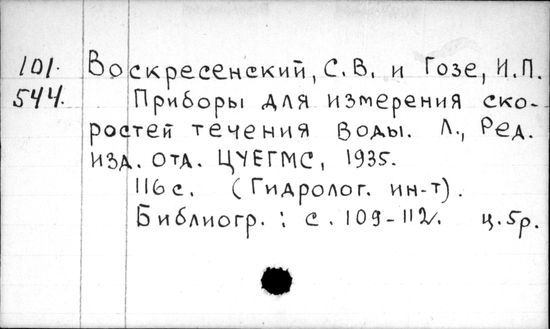 101. Воскресенский, С.В. и Гозе, И.П.
544. Приборы для измерения ско-
ростей течения воды. Л., Ред.
изд. отд. ЦУЕГМС, 1935.
116 с. (Гидролог. ин-т).
Библиогр.: с. 109-112. ц. 5р.